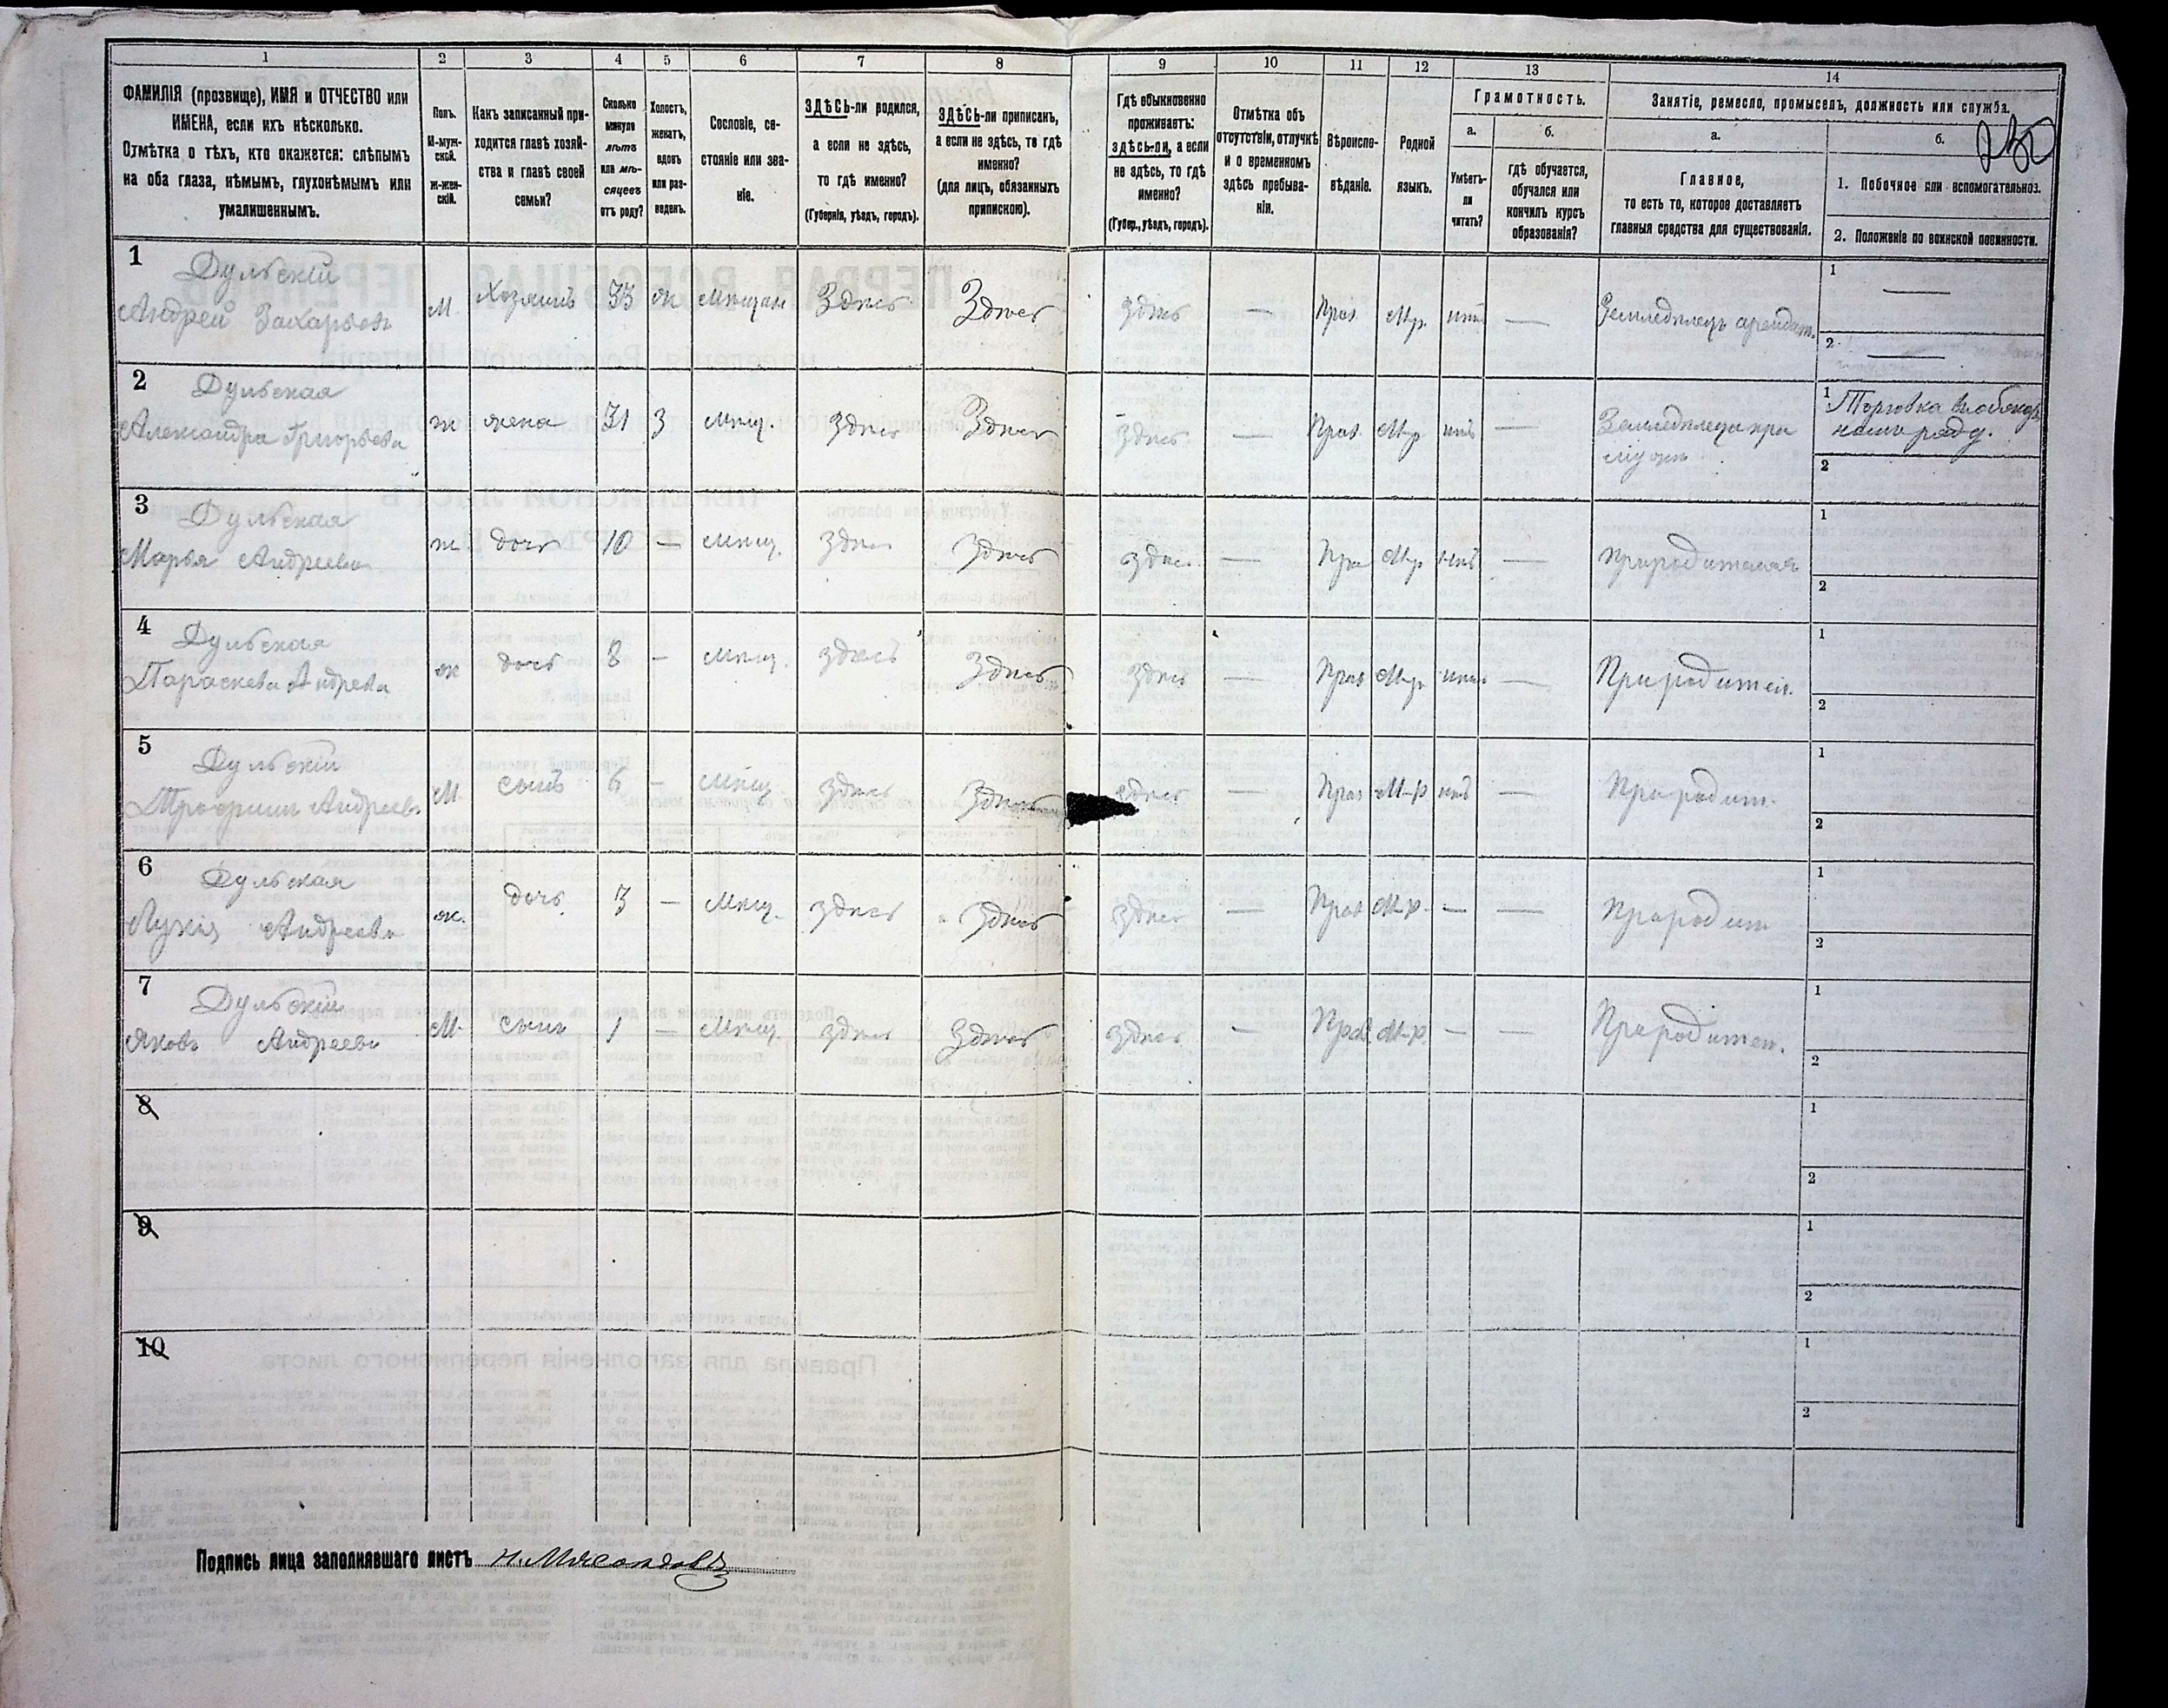 1 2 3 4 5 6 7 8 9 10 11 12 13 14
ФАМИЛІЯ (прозвище), ИМЯ и ОТЧЕСТВО или
ИМЕНА, если ихъ нѣсколько.
Отмѣтка о тѣхъ, кто окажется: слѣпымъ
на оба глаза, нѣмымъ, глухонѣмымъ или
умалишеннымъ.
Полъ.
М-муж-
ской.
Ж-жен-
скій.
Какъ записанный при-
ходится главѣ хозяй-
ства и главѣ своей
семьи?
Сколько
минуло
лѣтъ
или мѣ-
сяцевъ
отъ роду?
Холостъ,
женатъ,
вдовъ
или раз-
веденъ.
Сословіе, со-
стояніе или зва-
ніе.
ЗДѢСЬ-ли родился,
а если не здѣсь,
то гдѣ именно?
(Губернія, уѣздъ, городъ).
ЗДѢСЬ-ли приписанъ,
а если не здѣсь, то гдѣ
именно?
(для лицъ, обязанныхъ
припискою).
Гдѣ обыкновенно
проживаетъ:
здѣсь-ли, а если
не здѣсь, то гдѣ
именно?
(Губер., уѣздъ, городъ).
Отмѣтка объ
отсутствіи, отлучкѣ
и о временномъ
здѣсь пребыва-
ніи.
Вѣроиспо-
вѣданіе.
Родной
языкъ.
Грамотность.
а.
Умѣетъ-
ли
читать?
б.
гдѣ обучается,
обучался или
кончилъ курсъ
образованія?
Занятіе, ремесло, промыселъ, должность или служба.
а.
Главное,
то есть то, которое доставляетъ
главныя средства для существованія.
б.
1. Побочное или вспомогательное.
2. Положеніе по воинской повинности.
1 Дульскій
Андрей Захарьевъ М. Хозяинъ 33 ж Мѣщан Здѣсь Здѣсь здѣсь — Прав. М.р. нѣтъ — Земледѣлецъ арендат. 1 —
2 —
2 Дульская
Александра Григорьева ж жена 31 з Мѣщ. здѣсь Здѣсь здѣсь — Прав. М.р нѣтъ — Земледѣлецъ при
мужѣ
1 Торговка
2
3 Дульская
Марья Андреева ж. дочь 10 — Мѣщ. здѣсь здѣсь здѣсь — Пра М-р нѣтъ — при родителяхъ 1
2
4 Дульская
Параскева Андрева ж дочь 8 — Мѣщ. здѣсь здѣсь здѣсь — Прав М-р нѣтъ — При родител. 1
2
5 Дульскій
Трофимъ Андреевъ М. сынъ 6 — Мѣщ здѣсь здѣсь здѣсь — Прав М-р нѣтъ — При родит. 1
2
6 Дульская
Лукія Андреева ж. дочь 3 — Мѣщ. здѣсь здѣсь здѣсь — Прав М-р. — — При родит 1
2
7 Дульскій
Яковъ Андреевъ М. сынъ 1 — Мѣщ. здѣсь здѣсь здѣсь — Прав М-р. — — При родител. 1
2
8 1
2
9 1
2
10 1
2
Подпись лица заполнявшаго листъ Н. Мясоѣдовъ